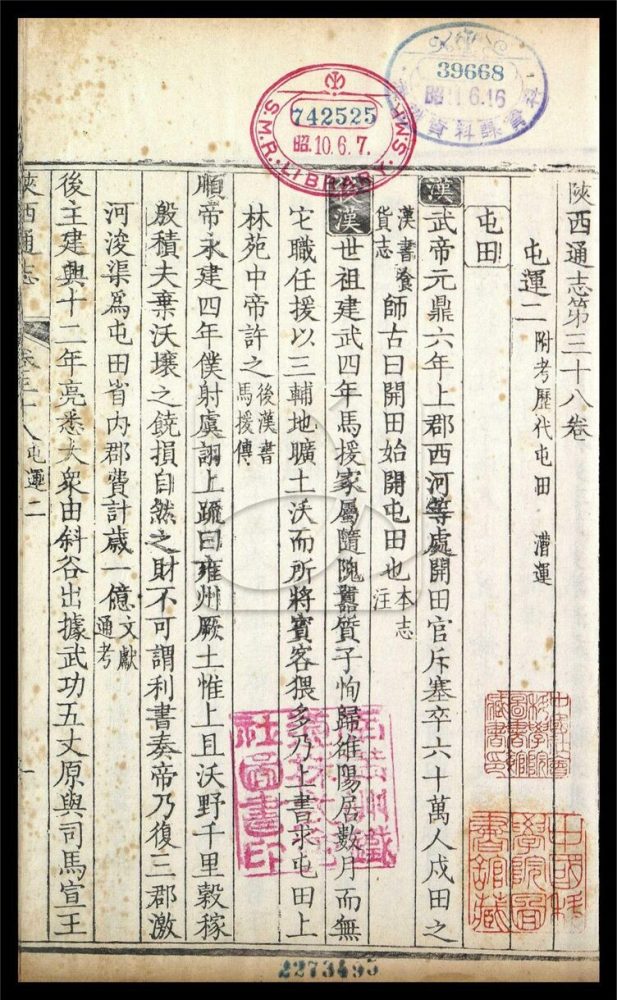 39668
742525
昭.10.6.7.
S.M.R. LIBRARY S.M.R.
陝西通志第三十八卷
屯運二 附考歷代屯田 漕運
屯田
漢 武帝元鼎六年上郡西河等處開田官斥塞卒六十萬人戍田之
漢書食貨志 師古曰開田始開屯田也 本志注
後漢 世祖建武四年馬援家屬隨隗囂質子恂歸雒陽居數月而無
它職任援以三輔地曠土沃而所將賓客猥多乃上書求屯田上
林苑中帝許之 後漢書馬援傳
順帝永建四年僕射虞詡上疏曰雍州厥土惟上且沃野千里穀稼
殷積夫棄沃壤之饒損自然之財不可謂利書奏帝乃復三郡激
河浚渠為屯田省內郡費計歲一億 文獻通考
後主建興十二年亮悉大眾由斜谷出據武功五丈原與司馬宣王
陝西通志 卷三十八 屯運二 一
社圖書印
中國科學院圖書館藏
2273495